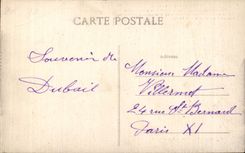 CARTE POSTALE
Souvenir de
Dubail
ADRESSE
Monsieur Madame
Villermot
24 rue St Bernard
Paris XI